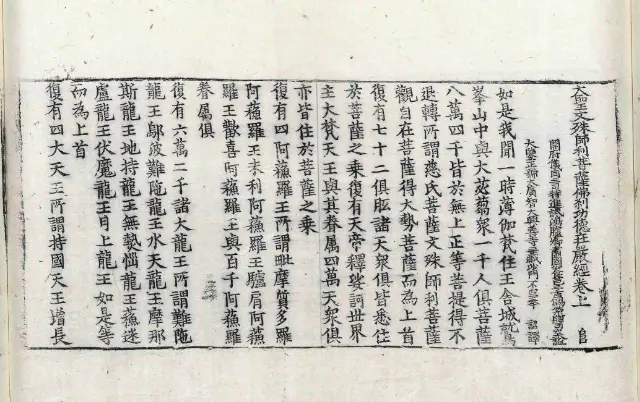 大聖文殊師利菩薩佛刹功德莊嚴經卷上 自
開府儀同三司特進試鴻臚卿肅國公食邑三千戶賜紫贈司空謚
大鑒正號大廣智大興善寺三藏沙門不空奉 詔譯
如是我聞一時薄伽梵住王舍城鷲
峯山中與大苾蒭衆一千人俱菩薩
八萬四千皆於無上正等菩提得不
退轉所謂慈氏菩薩文殊師利菩薩
觀自在菩薩得大勢菩薩而為上首
復有七十二俱胝諸天衆俱皆悉住
於菩薩之乘復有天帝釋娑訶世界
主大梵天王與其眷属四萬天衆俱
亦皆住於菩薩之乘
復有四阿蘓羅王所謂毗摩質多羅
阿蘓羅王末利阿蘓羅王驢肩阿蘓
羅王歡喜阿蘓羅王與百千阿蘓羅
眷属俱
復有六萬二千諸大龍王所謂難陁
龍王鄔波難陁龍王水天龍王摩那
斯龍王地持龍王無熱惱龍王蘓迷
盧龍王伏魔龍王月上龍王如是等
而為上首
復有四大天王所謂持國天王增長